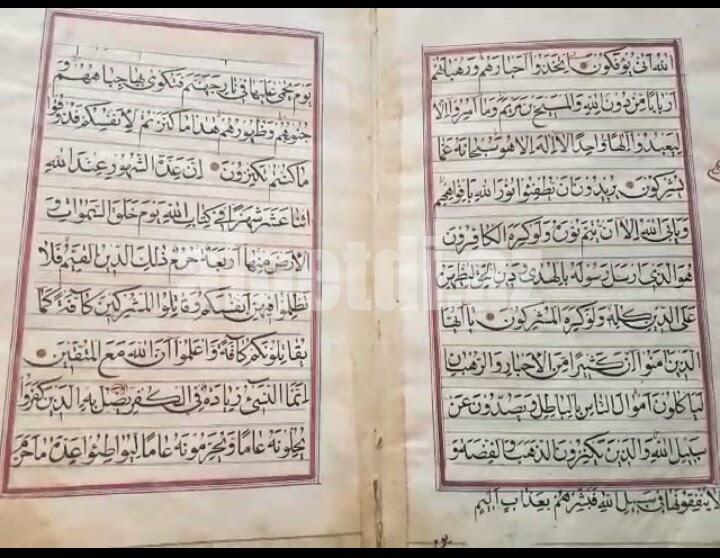 الله انى يؤفكون اتخذوا احبارهم ورهبانهم
اربابا من دون الله والمسيح بن مريم وما امروا الا
ليعبدوا الها واحدا لا اله الا هو سبحانه عما
يشركون يريدون ان يطفئوا نور الله بافواههم
ويابى الله الا ان يتم نوره ولو كره الكافرون
هو الذى ارسل رسوله بالهدى ودين الحق ليظهره
على الدين كله ولو كره المشركون يا ايها
الذين امنوا ان كثيرا من الاحبار والرهبان
لياكلون اموال الناس بالباطل ويصدون عن
سبيل الله والذين يكنزون الذهب والفضة و
لا ينفقونها فى سبيل الله فبشرهم بعذاب اليم
يوم
يوم يحمى عليها فى نار جهنم فتكوى بها جباههم و
جنوبهم وظهورهم هذا ما كنزتم لانفسكم فذوقوا
ما كنتم تكنزون ان عدة الشهور عند الله
اثنا عشر شهرا فى كتاب الله يوم خلق السموات و
الارض منها اربعة حرم ذلك الدين القيم فلا
تظلموا فيهن انفسكم وقاتلوا المشركين كافة كما
يقاتلونكم كافة واعلموا ان الله مع المتقين
انما النسئ زيادة فى الكفر يضل به الذين كفروا
يحلونه عاما ويحرمونه عاما ليواطئوا عدة ما حرم